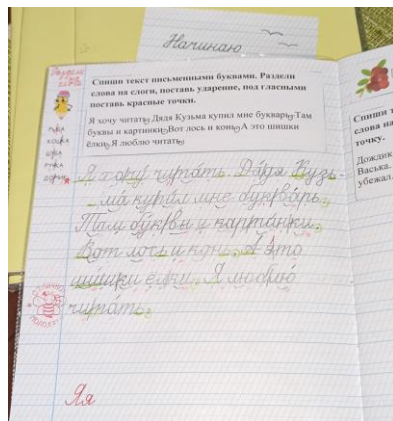 Начинаю
Раздели
Спиши текст письменными буквами. Раздели
слова на слоги, поставь ударение, под гласными
поставь красные точки.
Я хочу читать. Дядя Кузьма купил мне букварь. Там
буквы и картинки. Вот лось и конь. А это шишки
ёлки. Я люблю читать.
Я хочу читать. Дядя Кузь-
ма купил мне букварь.
Там буквы и картинки.
Вот лось и конь. А это
шишки ёлки. Я люблю
читать.
Яя
Спиши т
слова на
точку.
Дождик
Васька.
убежал.